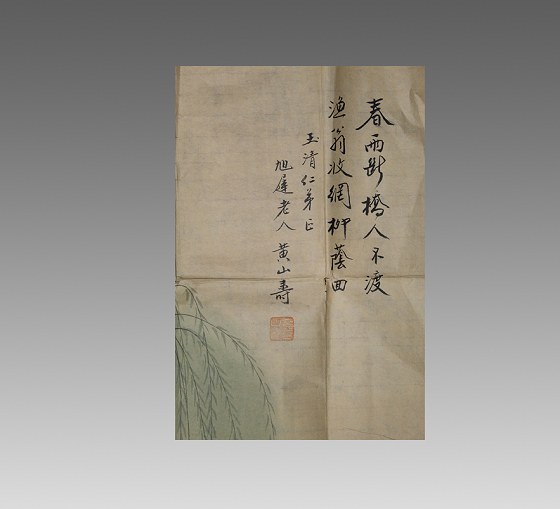 春雨斷橋人不渡
漁翁收網柳蔭回
玉清仁弟正
旭遲老人黃山壽